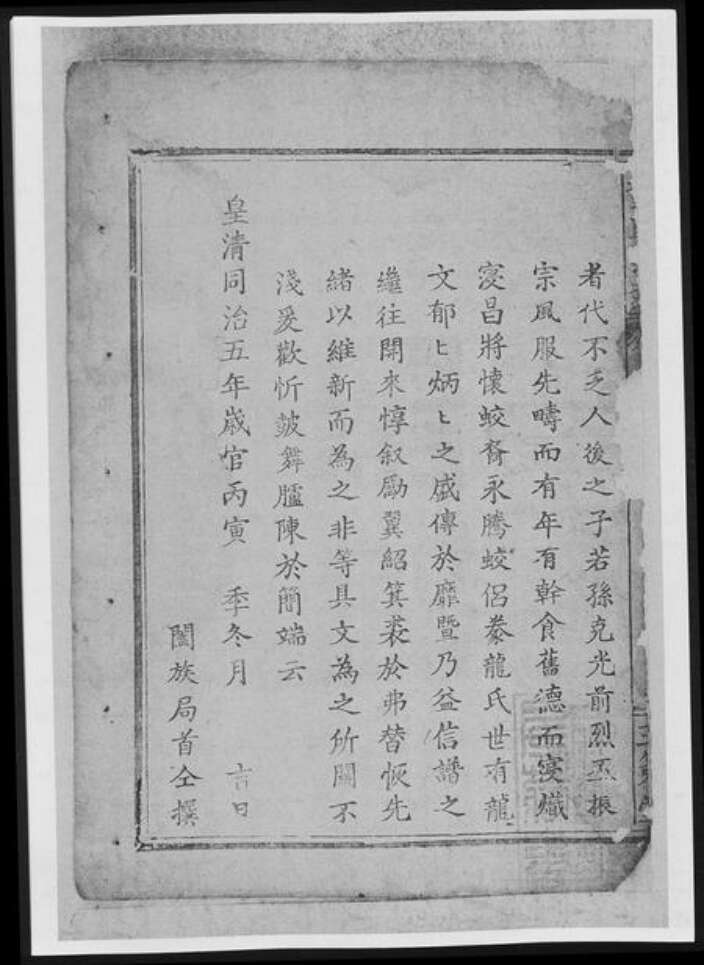 者代不乏人後之子若孫克光前烈丕振
宗風服先疇而有年有幹食舊德而寖熾
寖昌將懷蛟裔永騰蛟侶豢龍氏世有龍
文郁〻炳〻之盛傳於靡暨乃益信譜之
繼往開來惇叙勵翼紹箕裘於弗替恢先
緒以維新而為之非等具文為之所關不
淺爰歡忻鼓舞臚陳於簡端云
皇清同治五年歲官丙寅 季冬月 吉日
闔族局首仝撰